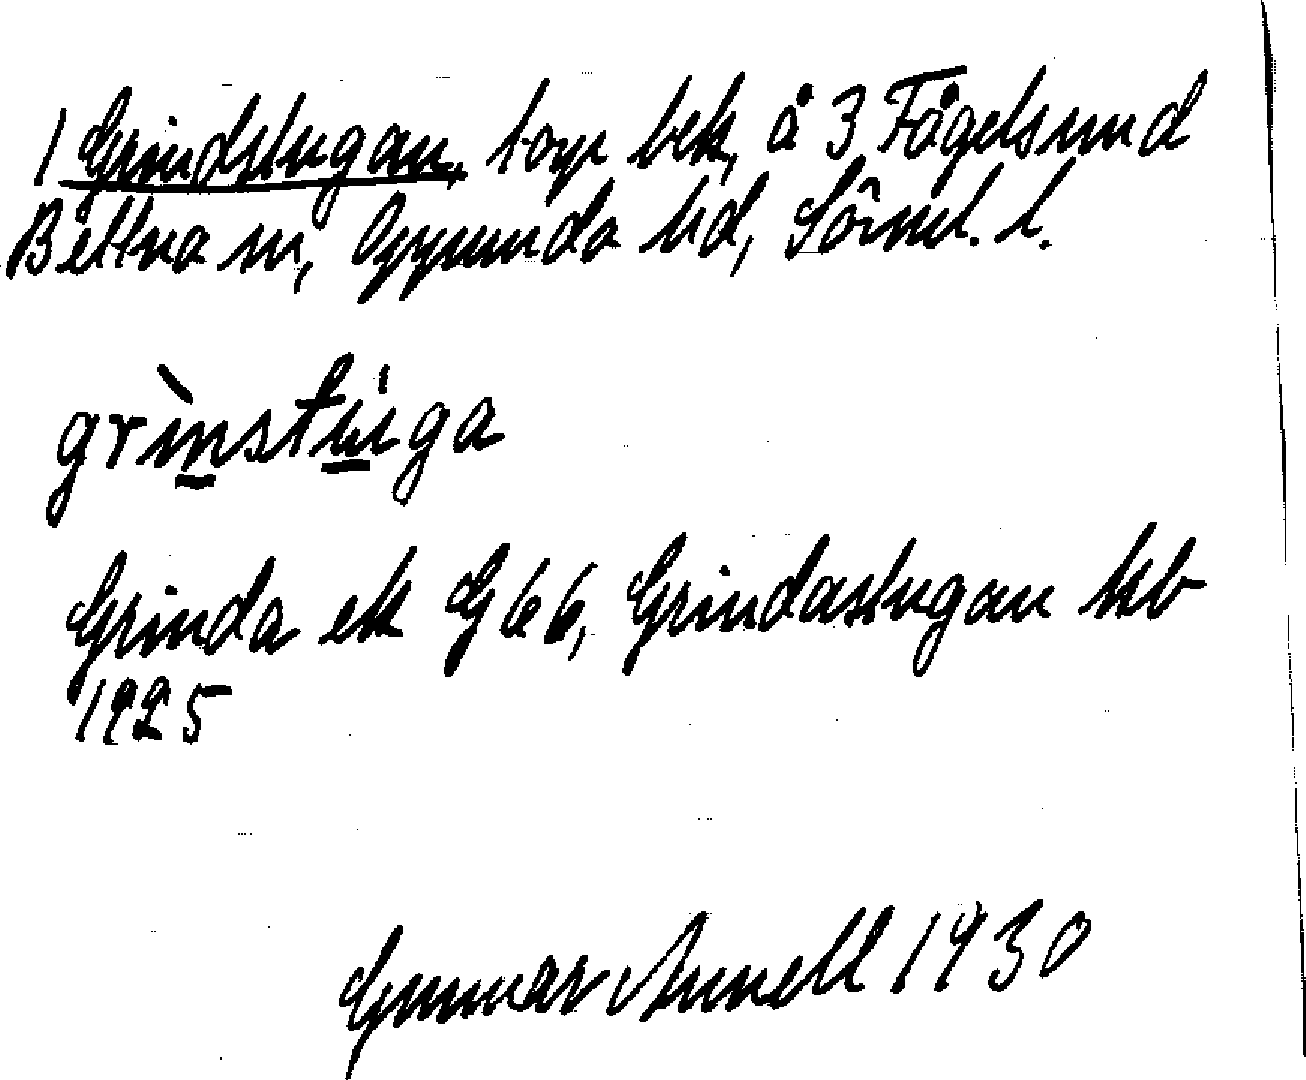 1 Grindstugan, torp bek, å 3 Fågelsund
Bettna sn, Oppunda hd, Sörml. l.
grìnstúga
Grinda ek G 66, Grindastugan kb
1925
Gunnar Annell 1930